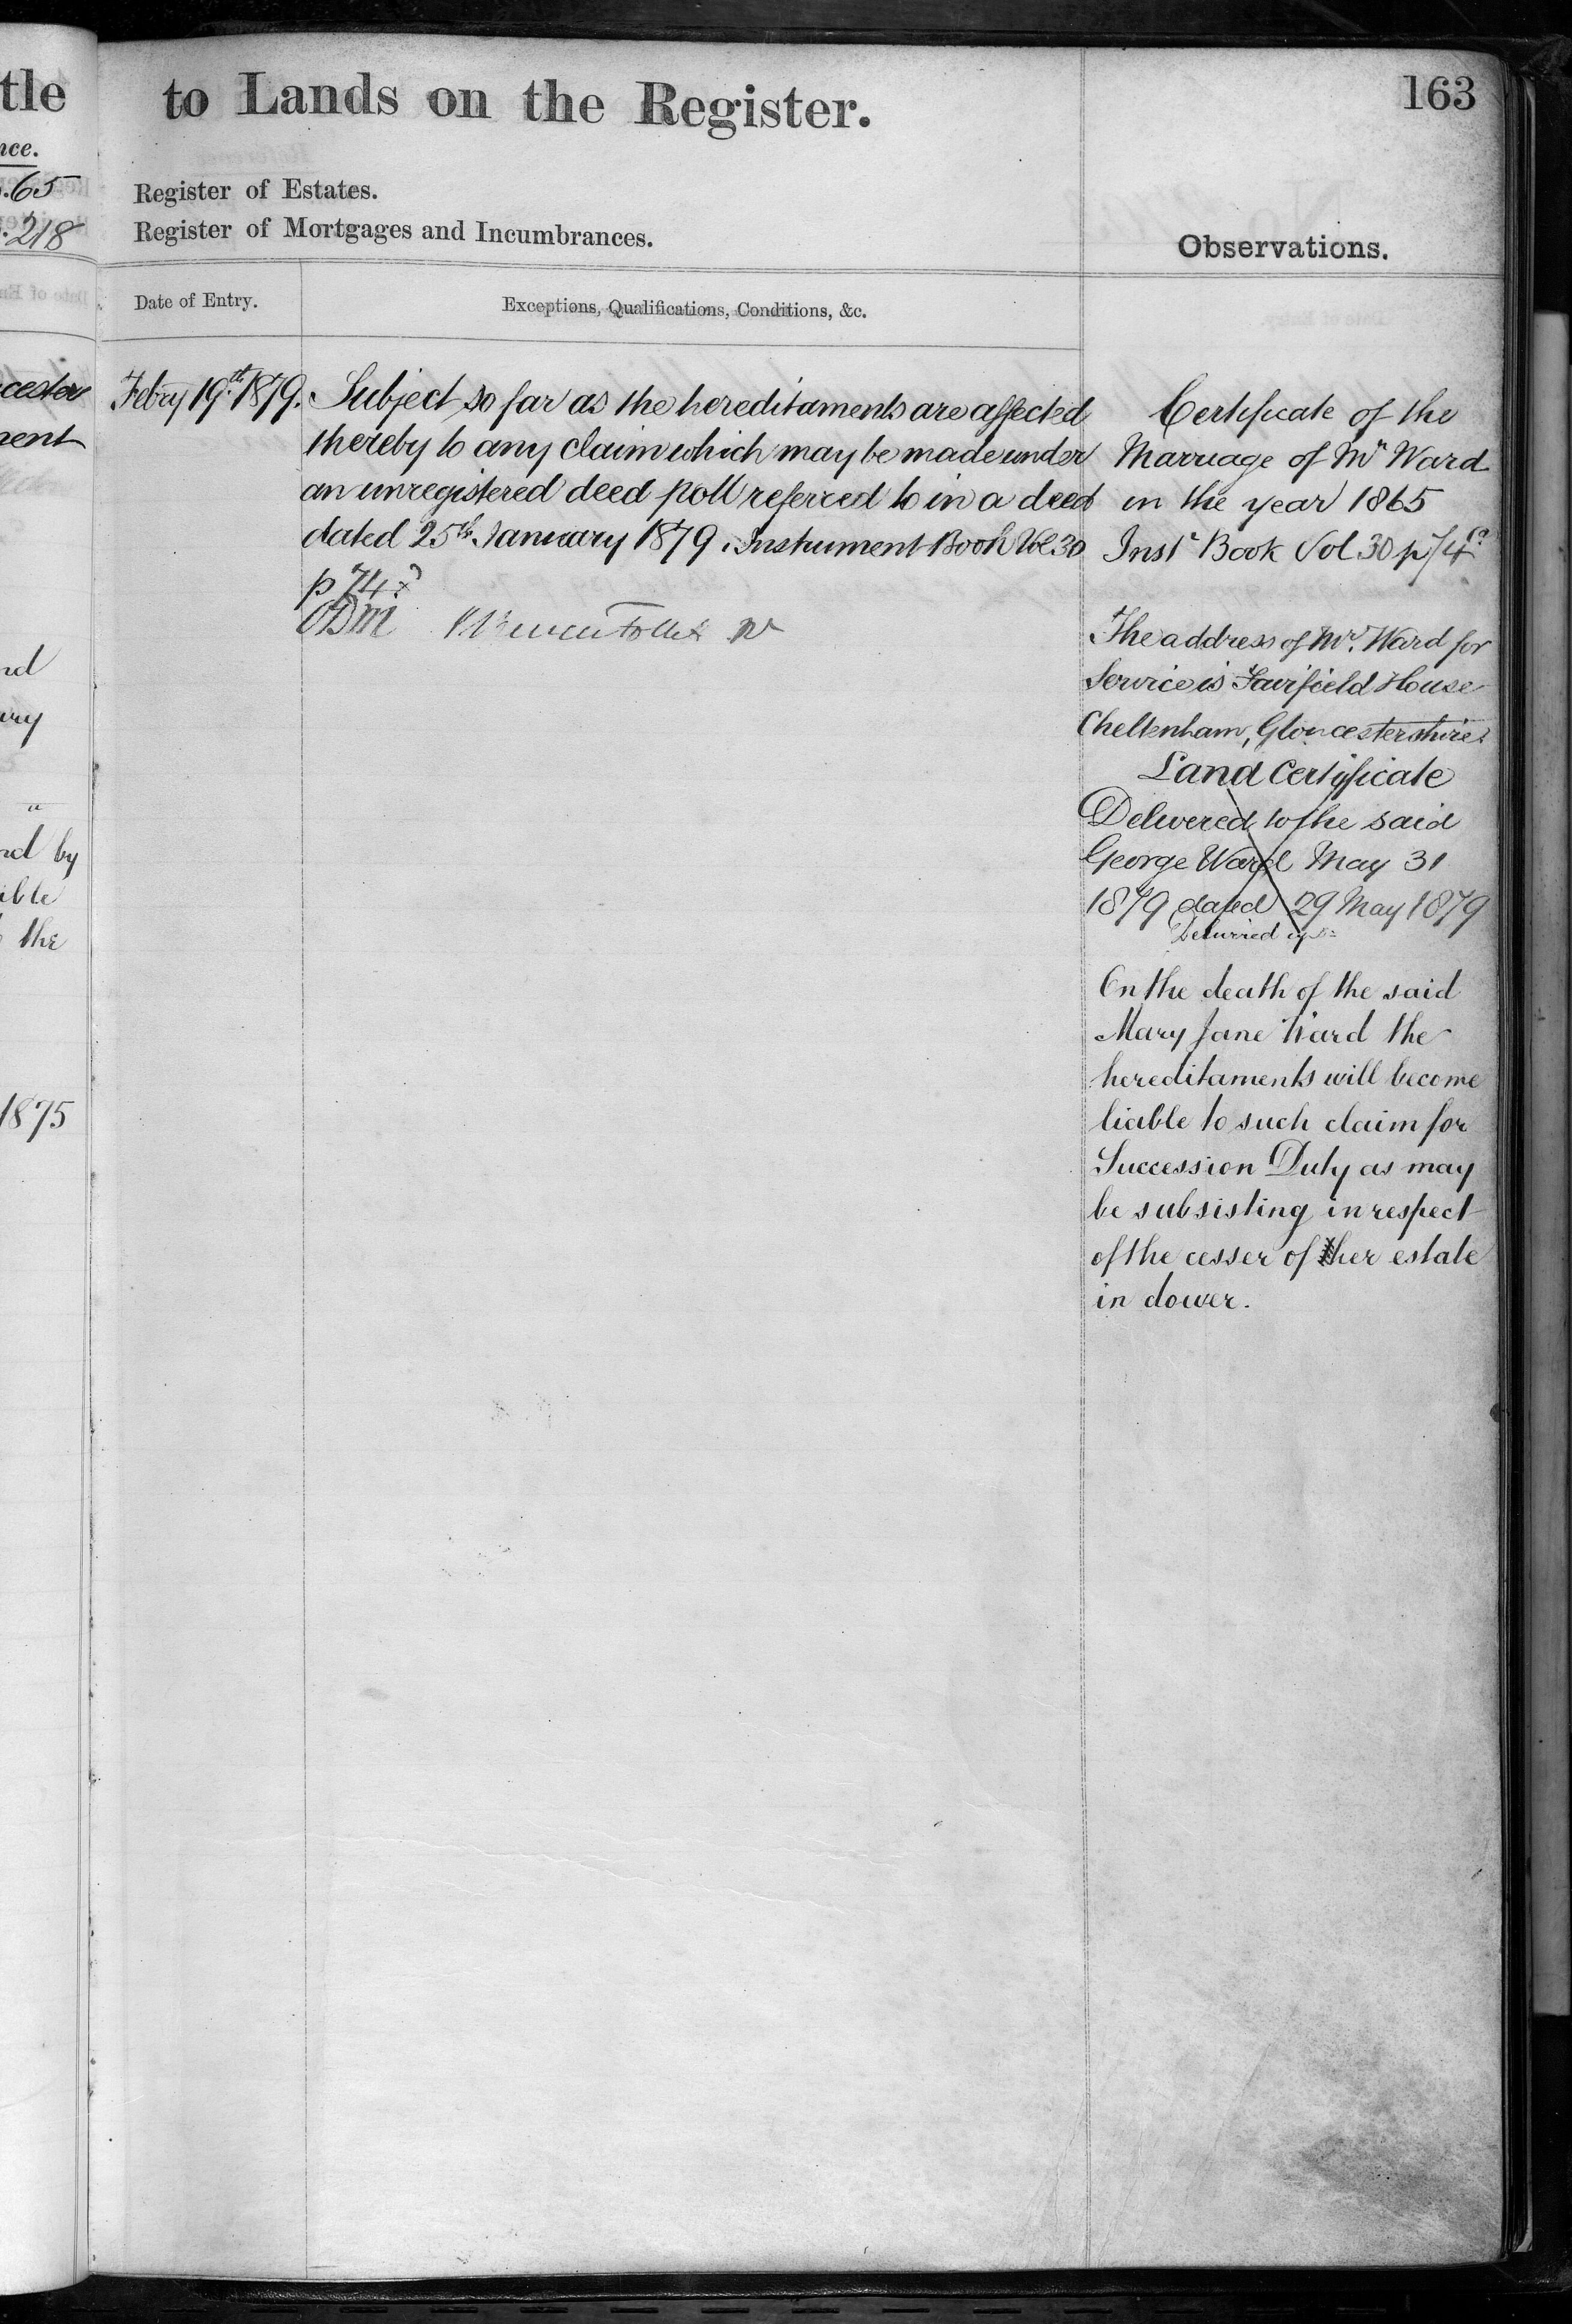 tle
nce.
.65
.218
cester
ment
nd
ary
"
nd by
ible
the
1875
to Lands on the Register.
163
Register of Estates.
Register of Mortgages and Incumbrances.
Observations.
Date of Entry.
Exceptions, Qualifications, Conditions, &c.
Febry 19th 1879.
Subject so far as the hereditaments are affected
thereby to any claim which may be made under
an unregistered deed poll referred to in a deed
dated 25th January 1879. Instrument Book Vol 30
p 74
Certificate of the
Marriage of Mr Ward
in the year 1865
Inst Book Vol 30 p 74
The address of Mr. Ward for
Service is Fairfield House
Cheltenham, Gloucestershire
Land Certificate
Delivered to the said
George Ward May 31
1879 dated 29 May 1879
On the death of the said
Mary Jane Ward the
hereditaments will become
liable to such claim for
Succession Duty as may
be subsisting in respect
of the cesser of her estate
in dower.